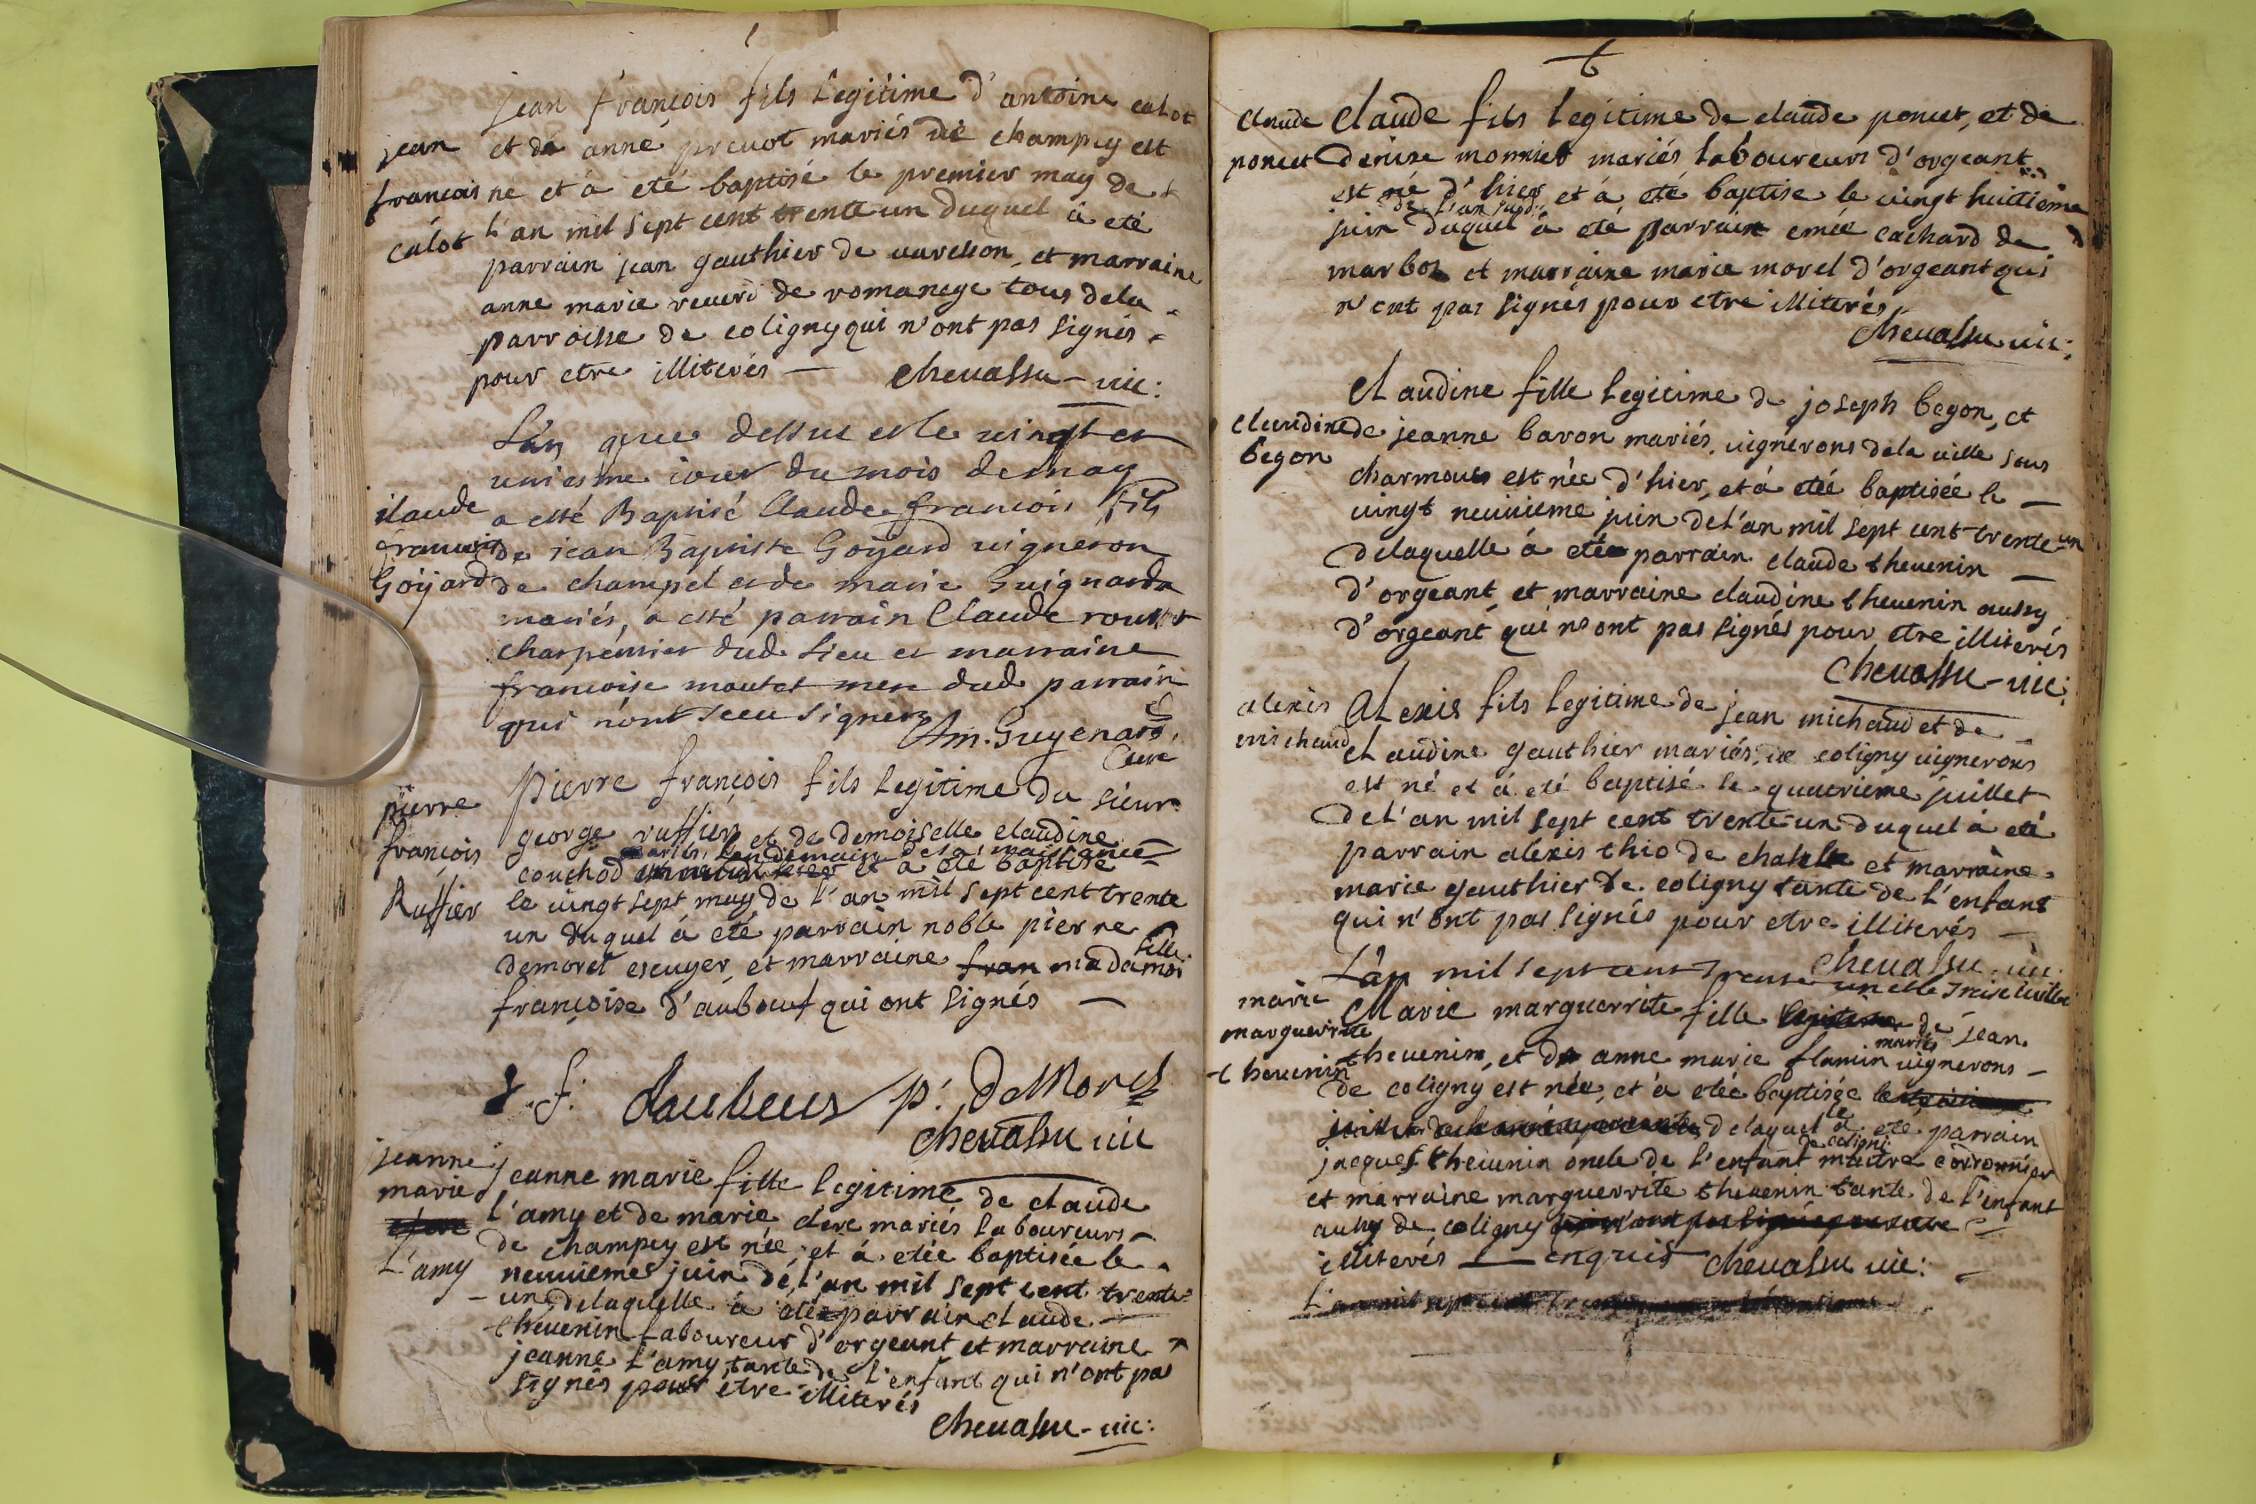 jean françois fils legitime d'antoine calot
jean et de anne prevot mariés de champey est
françois né et à eté baptisé le premier may de
calot l'an mil sept cent trente un duquel à eté
parrain jean gauthier de varelson, et marraine
anne marie reverd de romanege tous dela
parroisse de coligny qui n'ont pas signés
pour etre illiterés — chevassu - vic:
L'an que dessus et le vingt et
uniesme iour du mois de may
Claude a esté Baptisé Claude francois fils
francois de jean Baptiste Goÿard vigneron
Goÿard de champel et de marie Guignarda
mariés, a esté parrain Claude roux
charpentier dud. lieu et marraine
francoise moutet mere dud parrain
qui n'ont sceu signer
Am. Guyenard,
Curé
pierre pierre françois fils legitime du sieur
françois george ruffier et de demoiselle claudine
mariés, lendemain de sa naissance
couchod et a eté baptisé
Ruffier le vingt sept may de l'an mil sept cent trente
un duquel á eté parrain noble pierre
demorel escuyer, et marraine fran madamoiselle
françoise d'aúboeuf qui ont signés —
f: P: DeMorel
chevassu vic
jeanne jeanne marie fille legitime de claude
marie l'amy et de marie clere mariés laboureurs
clere de champey est née, et á etée baptisée le
L'amy neuvieme juin de l'an mil sept cent trente
- un delaquelle à etée parrain claude
thevenin laboureur d'orgeant et marraine
jeanne l'amy, tante de l'enfant qui n'ont pas
signés pour etre illiterés
chevassu - vic:
claude claude fils legitime de claude poncet, et de
poncet denise monnier mariés laboureurs d'orgeant
est né d'hier et á eté baptise le vingt huitieme
de l'an susd:
juin duquel á eté parrain emée cachard de
marboz et marraine marie morel d'orgeant qui
n'ont pas signés pour etre illiterés
chevassu vic:
claudine fille legitime de joseph begon, et
claudine de jeanne baron mariés, vignerons dela ville sous
begon charmoux est née d'hier, et á etée baptisée le —
vingt neuvieme juin de l'an mil sept cent trente un
delaquelle á etée parrain claude thevenin —
d'orgeant, et marraine claudine thevenin aussy
d'orgeant qui n'ont pas signés pour etre illiterés
chevassu - vic:
alexis alexis fils legitime de jean michaud et de
michaud claudine gauthier mariés, de coligny vignerons
est né et á eté baptisé le quatrieme juillet
de l'an mil sept cent trente un duquel á eté
parrain alexis thio de et marraine
marie gauthier de coligny tante de l'enfant
qui n'ont pas signés pour etre illiterés —
chevassu - vic:
L'an mil sept cent trente un et le treise juillet
marie Marie marguerrite fille legitime de jean
marguerrite mariés
thevenin thevenin, et de anne marie flamin vignerons —
de coligny est née, et á etée baptisée
delaquelle á eté parrain
de coligni
jacques thevenin oncle de l'enfant maitre cordonnier
et marraine marguerrite thevenin tante de l'enfant
aussy de coligny qui n'ont pas signés pour etre
illiterés — enquis chevassu vic:
L'an mil sept cent trente